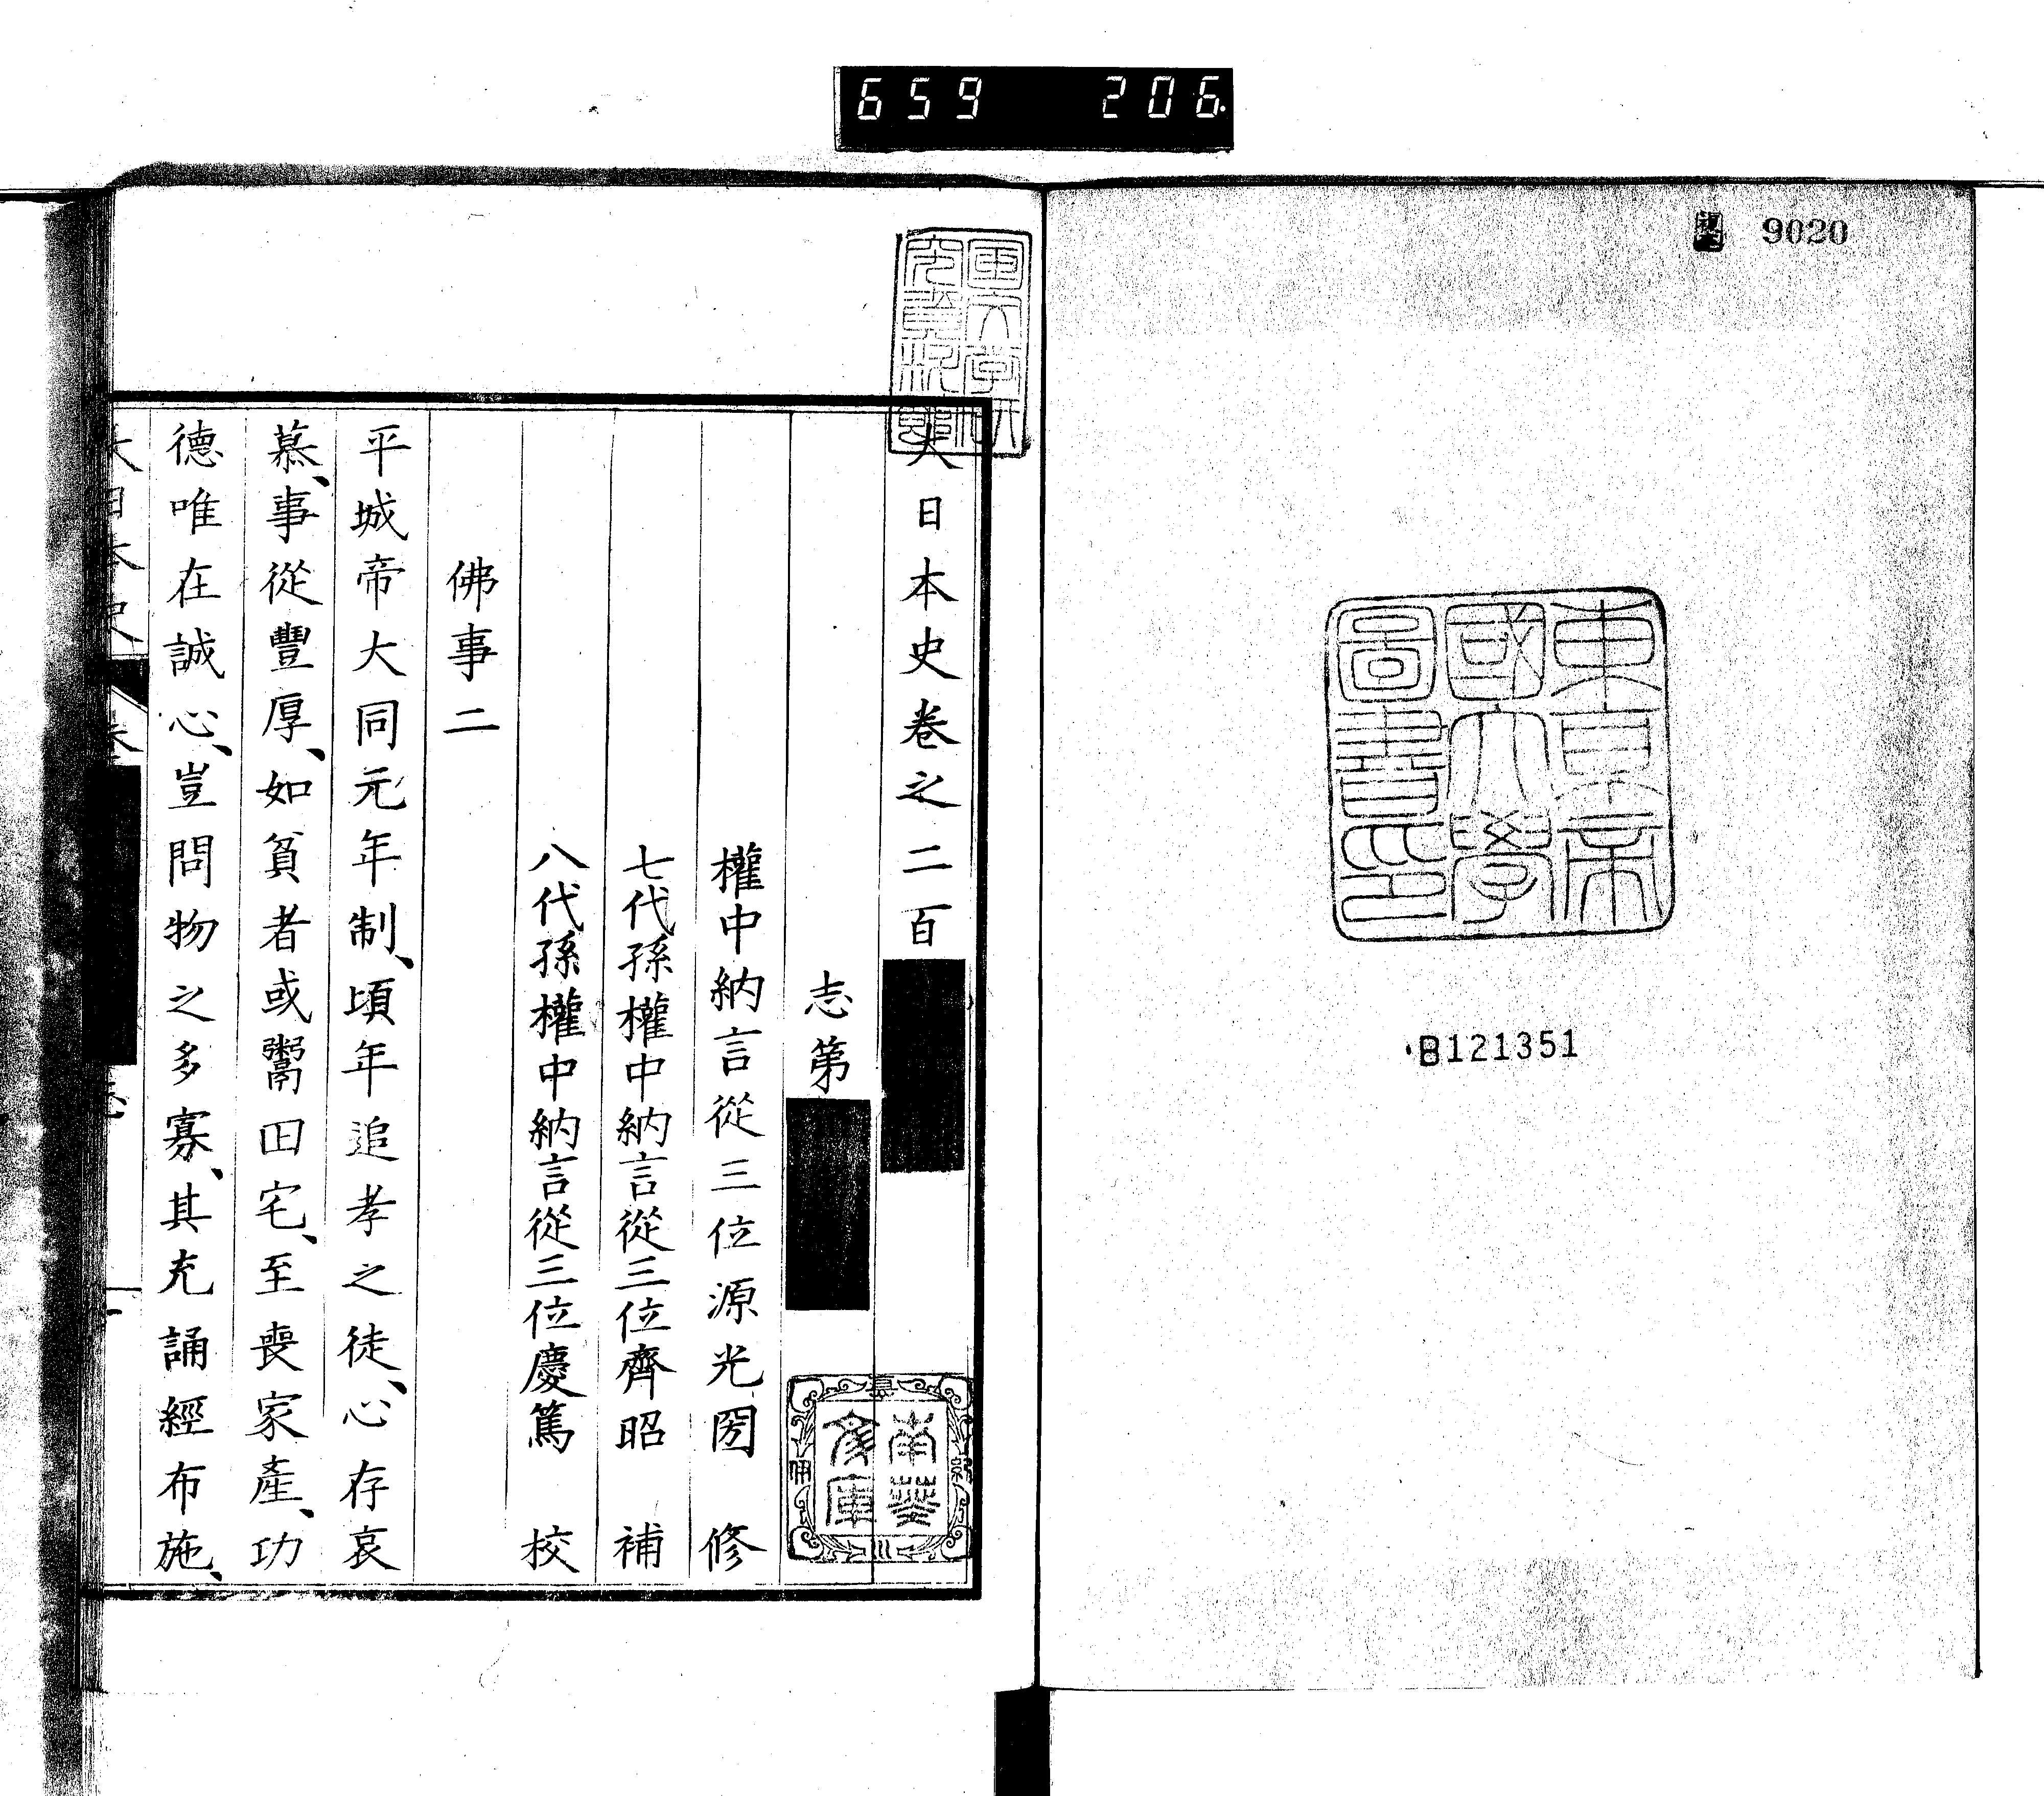 659 206
9020
東京帝
國大學
圖書印
B121351
大日本史卷之二百
志第
權中納言從三位源光圀 修
七代孫權中納言從三位齊昭 補
八代孫權中納言從三位慶篤 校
佛事二
平城帝大同元年制、頃年追孝之徒、心存哀
慕、事從豐厚、如貧者或鬻田宅、至喪家產、功
德唯在誠心、豈問物之多寡、其充誦經布施、
大日本史